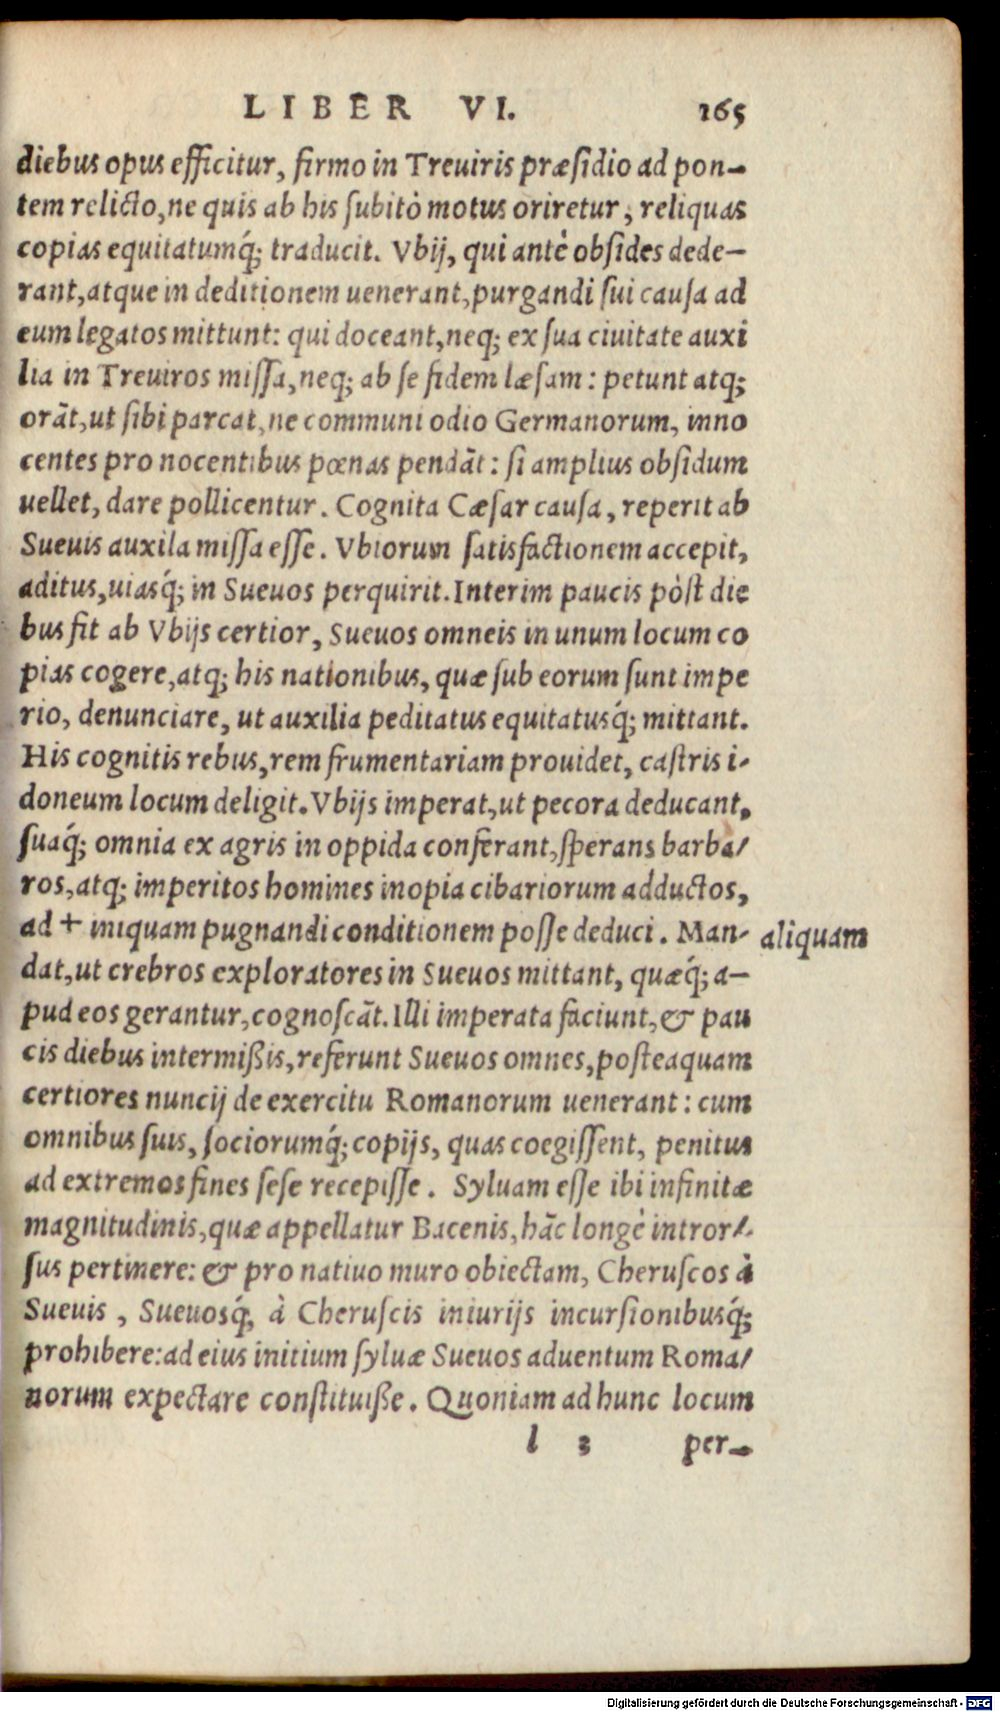 LIBER VI. 165
diebus opus efficitur, firmo in Treuiris præsidio ad pon-
tem relicto, ne quis ab his subitò motus oriretur, reliquas
copias equitatumq́; traducit. Vbij, qui antè obsides dede-
rant, atque in deditionem uenerant, purgandi sui causa ad
eum legatos mittunt: qui doceant, neq; ex sua ciuitate auxi
lia in Treuiros missa, neq; ab se fidem læsam: petunt atq;
orãt, ut sibi parcat, ne communi odio Germanorum, inno
centes pro nocentibus pœnas pendãt: si amplius obsidum
uellet, dare pollicentur. Cognita Cæsar causa, reperit ab
Sueuis auxila missa esse. Vbiorum satisfactionem accepit,
aditus, uiasq́; in Sueuos perquirit. Interim paucis pòst die
bus fit ab Vbijs certior, Sueuos omneis in unum locum co
pias cogere, atq; his nationibus, quæ sub eorum sunt impe
rio, denunciare, ut auxilia peditatus equitatusq́; mittant.
His cognitis rebus, rem frumentariam prouidet, castris i-
doneum locum deligit. Vbijs imperat, ut pecora deducant,
suaq́; omnia ex agris in oppida conferant, sperans barba/
ros, atq; imperitos homines inopia cibariorum adductos,
ad + iniquam pugnandi conditionem posse deduci. Man- aliquam
dat, ut crebros exploratores in Sueuos mittant, quæq́; a-
pud eos gerantur, cognoscãt. Illi imperata faciunt, & pau
cis diebus intermißis, referunt Sueuos omnes, posteaquam
certiores nuncij de exercitu Romanorum uenerant: cum
omnibus suis, sociorumq́; copijs, quas coegissent, penitus
ad extremos fines sese recepisse. Syluam esse ibi infinitæ
magnitudinis, quæ appellatur Bacenis, hãc longè intror/
sus pertinere: & pro natiuo muro obiectam, Cheruscos à
Sueuis, Sueuosq́, à Cheruscis iniurijs incursionibusq́;
prohibere: ad eius initium syluæ Sueuos aduentum Roma/
norum expectare constituiße. Quoniam ad hunc locum
l 3 per-
Digitalisierung gefördert durch die Deutsche Forschungsgemeinschaft - DFG